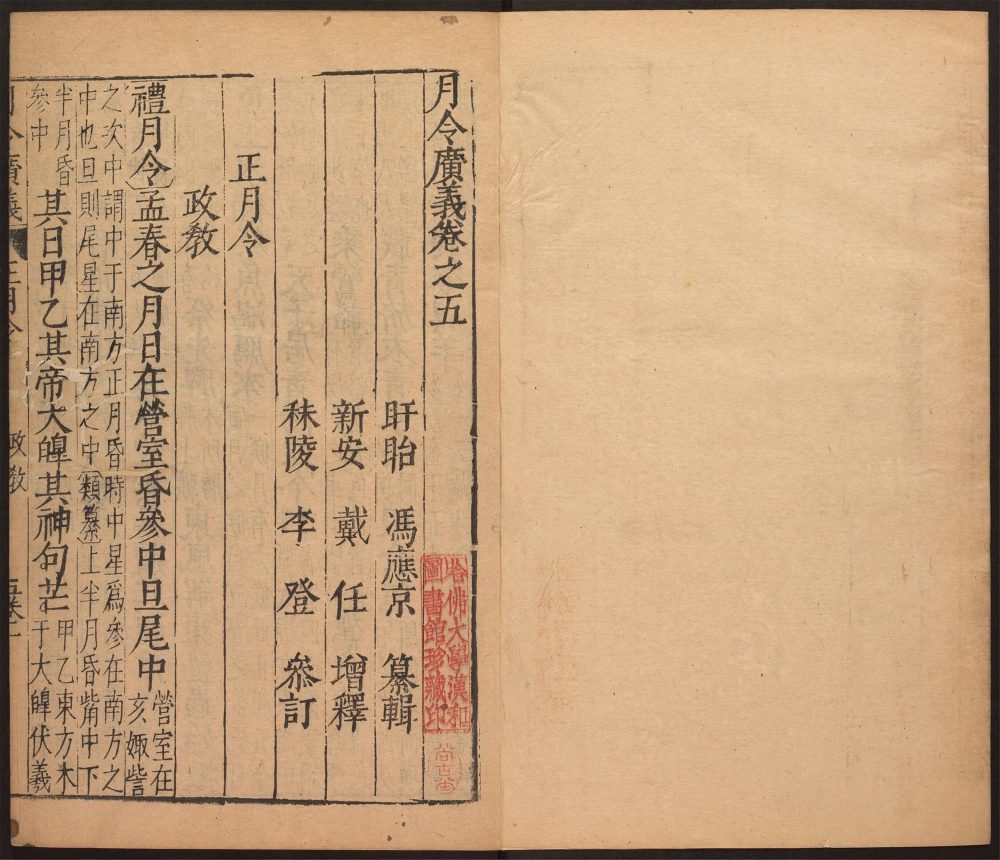 月令廣義卷之五
盱眙 馮應京 纂輯
新安 戴任 增釋
秣陵 李登 叅訂
正月令
政教
禮月令孟春之月日在營室昏參中旦尾中 營室在亥娵訾
之次中謂中于南方正月昏時中星爲參在南方之
中也旦則尾星在南方之中 類纂上半月昏觜中下
半月昏參中
其日甲乙其帝大皥其神句芒 甲乙東方木
于大皥伏羲
月令廣義 正月令 政教
哈佛大學漢和
圖書館珍藏印